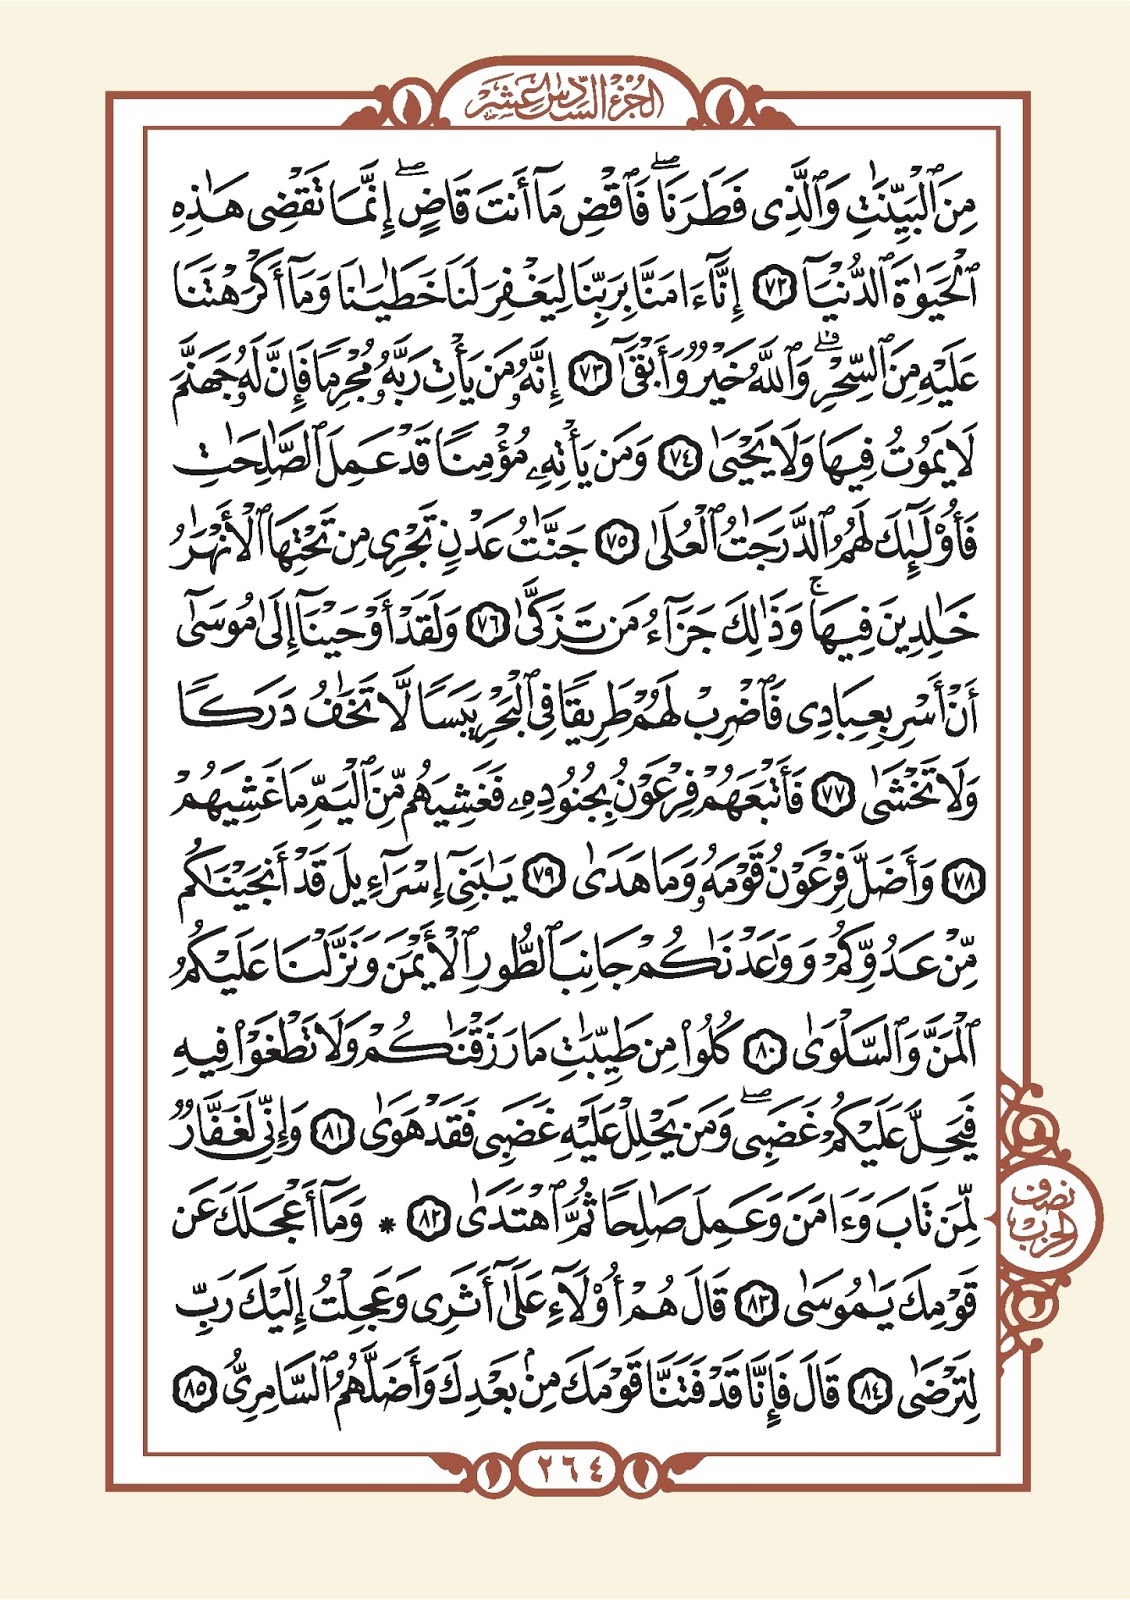 الجزء السادس عشر
مِنَ ٱلْبَيِّنَٰتِ وَٱلَّذِى فَطَرَنَاۖ فَٱقْضِ مَآ أَنتَ قَاضٍۖ إِنَّمَا تَقْضِى هَٰذِهِ
ٱلْحَيَوٰةَ ٱلدُّنْيَآ ٧٢ إِنَّآ ءَامَنَّا بِرَبِّنَا لِيَغْفِرَ لَنَا خَطَٰيَٰنَا وَمَآ أَكْرَهْتَنَا
عَلَيْهِ مِنَ ٱلسِّحْرِۗ وَٱللَّهُ خَيْرٌ وَأَبْقَىٰٓ ٧٣ إِنَّهُۥ مَن يَأْتِ رَبَّهُۥ مُجْرِمًا فَإِنَّ لَهُۥ جَهَنَّمَ
لَا يَمُوتُ فِيهَا وَلَا يَحْيَىٰ ٧٤ وَمَن يَأْتِهِۦ مُؤْمِنًا قَدْ عَمِلَ ٱلصَّٰلِحَٰتِ
فَأُو۟لَٰٓئِكَ لَهُمُ ٱلدَّرَجَٰتُ ٱلْعُلَىٰ ٧٥ جَنَّٰتُ عَدْنٍ تَجْرِى مِن تَحْتِهَا ٱلْأَنْهَٰرُ
خَٰلِدِينَ فِيهَاۚ وَذَٰلِكَ جَزَآءُ مَن تَزَكَّىٰ ٧٦ وَلَقَدْ أَوْحَيْنَآ إِلَىٰ مُوسَىٰٓ
أَنْ أَسْرِ بِعِبَادِى فَٱضْرِبْ لَهُمْ طَرِيقًا فِى ٱلْبَحْرِ يَبَسًا لَّا تَخَٰفُ دَرَكًا
وَلَا تَخْشَىٰ ٧٧ فَأَتْبَعَهُمْ فِرْعَوْنُ بِجُنُودِهِۦ فَغَشِيَهُم مِّنَ ٱلْيَمِّ مَا غَشِيَهُمْ
٧٨ وَأَضَلَّ فِرْعَوْنُ قَوْمَهُۥ وَمَا هَدَىٰ ٧٩ يَٰبَنِىٓ إِسْرَٰٓءِيلَ قَدْ أَنجَيْنَٰكُم
مِّنْ عَدُوِّكُمْ وَوَٰعَدْنَٰكُمْ جَانِبَ ٱلطُّورِ ٱلْأَيْمَنَ وَنَزَّلْنَا عَلَيْكُمُ
ٱلْمَنَّ وَٱلسَّلْوَىٰ ٨٠ كُلُوا۟ مِن طَيِّبَٰتِ مَا رَزَقْنَٰكُمْ وَلَا تَطْغَوْا۟ فِيهِ
فَيَحِلَّ عَلَيْكُمْ غَضَبِىۖ وَمَن يَحْلِلْ عَلَيْهِ غَضَبِى فَقَدْ هَوَىٰ ٨١ وَإِنِّى لَغَفَّارٌ
لِّمَن تَابَ وَءَامَنَ وَعَمِلَ صَٰلِحًا ثُمَّ ٱهْتَدَىٰ ٨٢ * وَمَآ أَعْجَلَكَ عَن
قَوْمِكَ يَٰمُوسَىٰ ٨٣ قَالَ هُمْ أُو۟لَآءِ عَلَىٰٓ أَثَرِى وَعَجِلْتُ إِلَيْكَ رَبِّ
لِتَرْضَىٰ ٨٤ قَالَ فَإِنَّا قَدْ فَتَنَّا قَوْمَكَ مِنۢ بَعْدِكَ وَأَضَلَّهُمُ ٱلسَّامِرِىُّ ٨٥
نصف
الحزب
٢٦٤